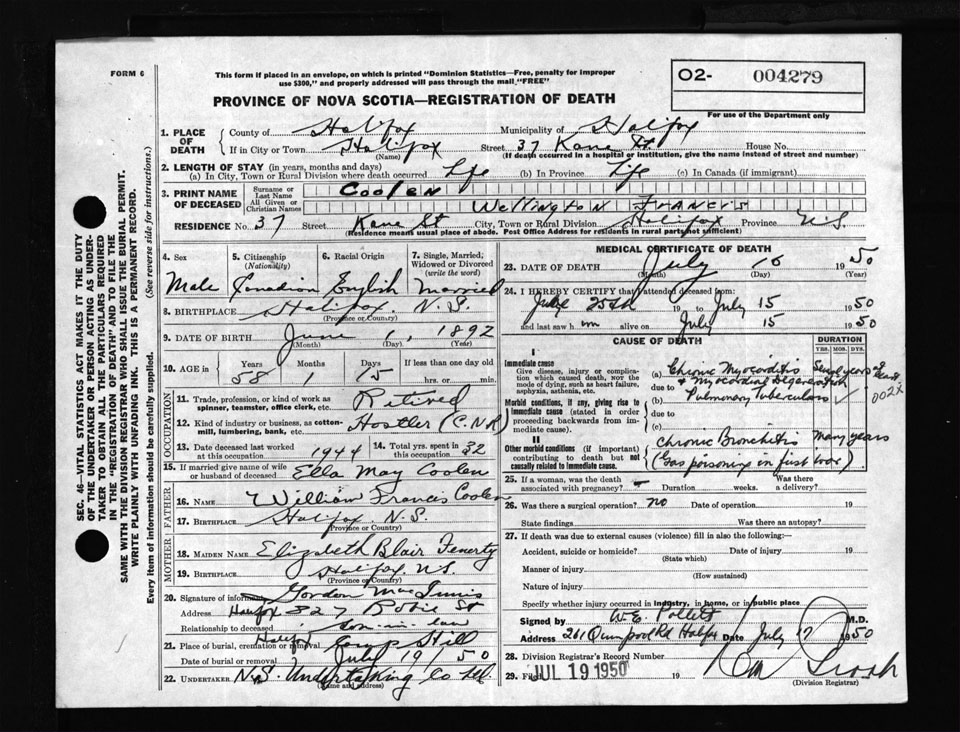 FORM 6
This form if placed in an envelope, on which is printed "Dominion Statistics—Free, penalty for improper
use $300," and properly addressed will pass through the mail "FREE"
O2- 004279
For use of the Department only
PROVINCE OF NOVA SCOTIA—REGISTRATION OF DEATH
1. PLACE OF DEATH { County of Halifax Municipality of Halifax
If in City or Town Halifax Street 37 Kane St. House No.
(Name) (If death occurred in a hospital or institution, give the name instead of street and number)
2. LENGTH OF STAY (in years, months and days)
(a) In City, Town or Rural Division where death occurred Life (b) In Province Life (c) In Canada (if immigrant)
3. PRINT NAME OF DECEASED { Surname or Last Name Coolen
All Given or Christian Names Wellington Francis
RESIDENCE No. 37 Street Kane St City, Town or Rural Division Halifax Province N.S.
(Residence means usual place of abode. Post Office Address for residents in rural parts not sufficient)
4. Sex 5. Citizenship (Nationality) 6. Racial Origin 7. Single, Married, Widowed or Divorced (write the word)
Male Canadian English Married
8. BIRTHPLACE Halifax, N.S.
(Province or Country)
9. DATE OF BIRTH June 1, 1892
(Month) (Day) (Year)
10. AGE in { Years Months Days If less than one day old
58 1 15 hrs. or min.
OCCUPATION
11. Trade, profession, or kind of work as
spinner, teamster, office clerk, etc. Retired
12. Kind of industry or business, as cotton-
mill, lumbering, bank, etc. Hostler (C.N.R)
13. Date deceased last worked
at this occupation 1944
14. Total yrs. spent in
this occupation 32
15. If married give name of wife
or husband of deceased Ella May Coolen
FATHER
16. NAME William Francis Coolen
17. BIRTHPLACE Halifax N.S.
(Province or Country)
MOTHER
18. MAIDEN NAME Elizabeth Blair Fenerty
19. BIRTHPLACE Halifax, N.S.
(Province or Country)
20. Signature of informant Gordon MacInnis
Address Halifax 327 Robie St
Relationship to deceased son-in-law
21. Place of burial, cremation or removal Halifax Camp Hill
Date of burial or removal July 19/50
22. UNDERTAKER N.S. Undertaking Co Ltd.
(Name and address)
MEDICAL CERTIFICATE OF DEATH
23. DATE OF DEATH July 16 1950
(Month) (Day) (Year)
24. I HEREBY CERTIFY that I attended deceased from:
25th 19 to July 15 1950
and last saw him alive on July 15 1950
CAUSE OF DEATH DURATION
YRS. MOS. DYS.
I
Immediate cause
Give disease, injury or complication which caused death, not the mode of dying, such as heart failure, asphyxia, asthenia, etc.
(a) Chronic Myocarditis
& Myocardial Degeneration
due to
Morbid conditions, if any, giving rise to immediate cause (stated in order proceeding backwards from immediate cause).
(b) Pulmonary Tuberculosis 002X
due to
(c)
II
Other morbid conditions (if important) contributing to death but not causally related to immediate cause.
Chronic Bronchitis Many years
(Gas poisoning in first war)
25. If a woman, was the death
associated with pregnancy? - Duration weeks. Was there a delivery?
26. Was there a surgical operation? no Date of operation 19
State findings Was there an autopsy?
27. If death was due to external causes (violence) fill in also the following:
Accident, suicide or homicide? Date of injury 19
(State which)
Manner of injury
(How sustained)
Nature of injury
Specify whether injury occurred in industry, in home, or in public place
Signed by W.E. Pollett M.D.
Address 261 Quinpool Rd Halifax Date July 17 1950
28. Division Registrar's Record Number
29. Filed JUL 19 1950 19
(Division Registrar)
SEC. 46—VITAL STATISTICS ACT MAKES IT THE DUTY
OF THE UNDERTAKER OR PERSON ACTING AS UNDER-
TAKER TO OBTAIN ALL THE PARTICULARS REQUIRED
IN THE "REGISTRATION OF DEATH" AND TO FILE THE
SAME WITH THE DIVISION REGISTRAR WHO SHALL ISSUE THE BURIAL PERMIT.
WRITE PLAINLY WITH UNFADING INK. THIS IS A PERMANENT RECORD.
Every item of information should be carefully supplied. (See reverse side for instructions.)